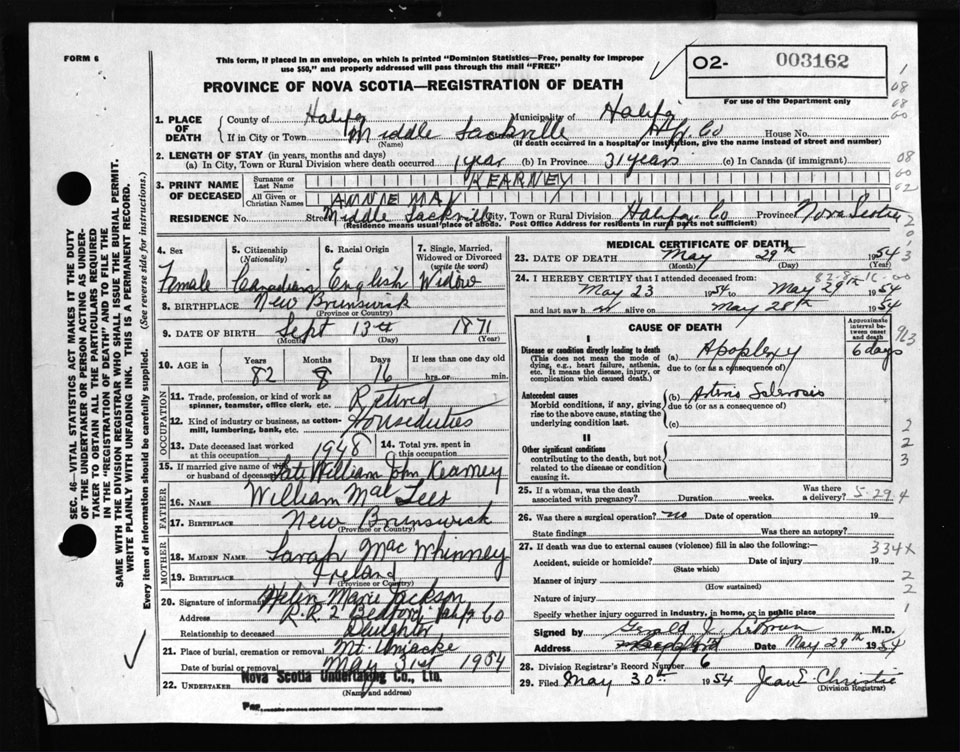 FORM 6
This form, if placed in an envelope, on which is printed "Dominion Statistics—Free, penalty for improper
use $50," and properly addressed will pass through the mail "FREE"
PROVINCE OF NOVA SCOTIA—REGISTRATION OF DEATH
O2- 003162
For use of the Department only
1. PLACE OF DEATH
County of Halifax Municipality of Halifax
If in City or Town Middle Sackville Hfx. Co House No.
(Name) (If death occurred in a hospital or institution, give the name instead of street and number)
2. LENGTH OF STAY (in years, months and days)
(a) In City, Town or Rural Division where death occurred 1 year (b) In Province 31 years (c) In Canada (if immigrant)
3. PRINT NAME OF DECEASED
Surname or Last Name KEARNEY
All Given or Christian Names ANNIE MAY
RESIDENCE No. Street Middle Sackville City, Town or Rural Division Halifax Co Province Nova Scotia
(Residence means usual place of abode. Post Office Address for residents in rural parts not sufficient)
4. Sex Female
5. Citizenship (Nationality) Canadian
6. Racial Origin English
7. Single, Married, Widowed or Divorced (write the word) Widow
8. BIRTHPLACE New Brunswick
(Province or Country)
9. DATE OF BIRTH Sept 13th 1871
(Month) (Day) (Year)
10. AGE in Years 82 Months 8 Days 16 If less than one day old hrs. or min.
OCCUPATION
11. Trade, profession, or kind of work as spinner, teamster, office clerk, etc. Retired
12. Kind of industry or business, as cotton-mill, lumbering, bank, etc.
13. Date deceased last worked at this occupation 1948
14. Total yrs. spent in this occupation
15. If married give name of wife or husband of deceased Late William John Kearney
FATHER
16. NAME William Mac Lees
17. BIRTHPLACE New Brunswick
(Province or Country)
MOTHER
18. MAIDEN NAME Sarah Mac Whinney
19. BIRTHPLACE Ireland
(Province or Country)
20. Signature of informant Helen Marie Jackson
Address R.R. 2 Bedford Hafx Co
Relationship to deceased Daughter
21. Place of burial, cremation or removal Mt. Uniacke
Date of burial or removal May 31st 1954
22. UNDERTAKER Nova Scotia Undertaking Co., Ltd.
(Name and address)
Per
MEDICAL CERTIFICATE OF DEATH
23. DATE OF DEATH May 29th 1954
(Month) (Day) (Year)
82-8-16-00
24. I HEREBY CERTIFY that I attended deceased from:
May 23 1954 to May 29th 1954
and last saw h alive on May 28th 1954
CAUSE OF DEATH
Approximate interval between onset and death
I
Disease or condition directly leading to death
(This does not mean the mode of dying, e.g., heart failure, asthenia, etc. It means the disease, injury, or complication which caused death.)
(a) Apoplexy 6 days
due to (or as a consequence of)
Antecedent causes
Morbid conditions, if any, giving rise to the above cause, stating the underlying condition last.
(b) Arterio Sclerosis
due to (or as a consequence of)
(c)
II
Other significant conditions
contributing to the death, but not related to the disease or condition causing it.
25. If a woman, was the death associated with pregnancy? Duration weeks. Was there a delivery? 5-29-4
26. Was there a surgical operation? no Date of operation 19
State findings Was there an autopsy?
27. If death was due to external causes (violence) fill in also the following:—
334X
Accident, suicide or homicide? Date of injury 19
(State which)
Manner of injury
(How sustained)
Nature of injury
Specify whether injury occurred in industry, in home, or in public place
Signed by Gerald J. LeBrun M.D.
Address Date May 29th 1954
28. Division Registrar's Record Number 6
29. Filed May 30th 1954 Jean E. Christie
(Division Registrar)
SEC. 46—VITAL STATISTICS ACT MAKES IT THE DUTY
OF THE UNDERTAKER OR PERSON ACTING AS UNDER-
TAKER TO OBTAIN ALL THE PARTICULARS REQUIRED
IN THE "REGISTRATION OF DEATH" AND TO FILE THE
SAME WITH THE DIVISION REGISTRAR WHO SHALL ISSUE THE BURIAL PERMIT.
WRITE PLAINLY WITH UNFADING INK. THIS IS A PERMANENT RECORD.
Every item of information should be carefully supplied. (See reverse side for instructions.)